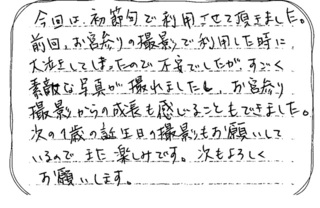 今回は、初節句で利用させて頂きました。
前回、お宮参りの撮影で利用した時に
大泣きしてしまったので不安でしたがすごく
素敵な写真が撮れました。お宮参り
撮影からの成長も感じることもできました。
次の1歳の誕生日の撮影もお願いして
いるのでまた楽しみです。次もよろしく
お願いします。